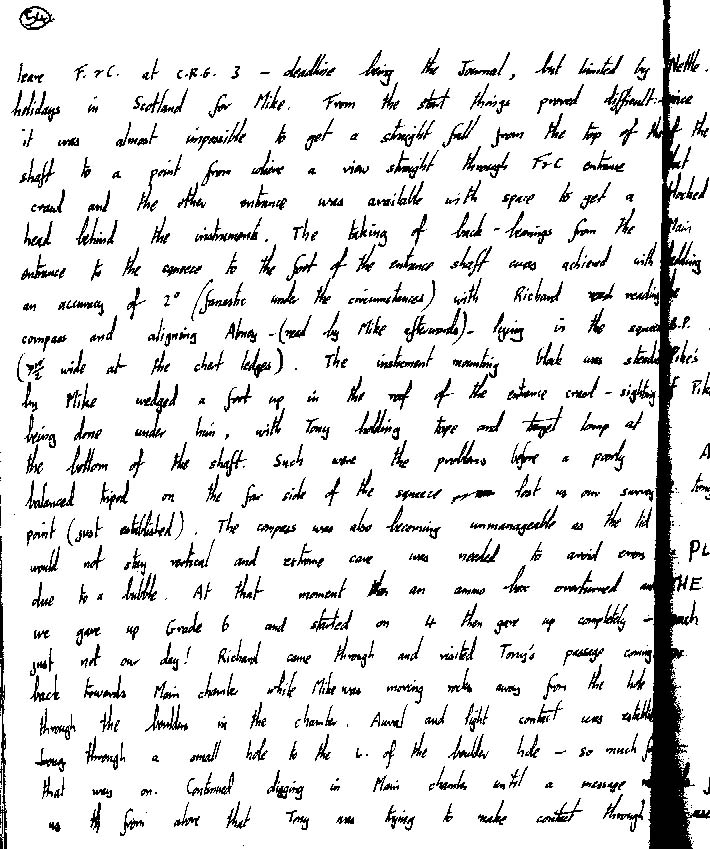 54
leave F.&C. at C.R.G. 3 - deadline being the Journal, but limited by Nettle.
holidays in Scotland for Mike. From the start things proved difficult: since
it was almost impossible to get a straight fall from the top of the the
shaft to a point from where a view straight through F&C entrance
crawl and the other entrance was available with space to get a
head behind the instruments. The taking of back-bearings from the Main
entrance to the squeeze to the foot of the entrance shaft was achieved with
an accuracy of 2° (fantastic under the circumstances) with Richard reading
compass and aligning Abney - (read by Mike afterwards) - lying in the
wide at the chest ledges). The instrument mounting block was
by Mike wedged a foot up in the roof of the entrance crawl - sighting
being done under him, with Tony holding tape and target lamp at
the bottom of the shaft. Such were the problems before a poorly
balanced tripod on the far side of the squeeze lost us our survey
point (just established). The compass was also becoming unmanageable as the lid
would not stay vertical and extreme care was needed to avoid errors
due to a bubble. At that moment an ammo box overturned
we gave up Grade 6 and started on 4 then gave up completely -
just not our day! Richard came through and visited Tony's passage
back towards Main chamber while Mike was moving rocks away from the hole
through the boulders in the chamber. Aural and light contact was
through a small hole to the L. of the boulder hole - so much
that was on. Continued digging in Main chamber until a message
us from above that Tony was trying to make contact through